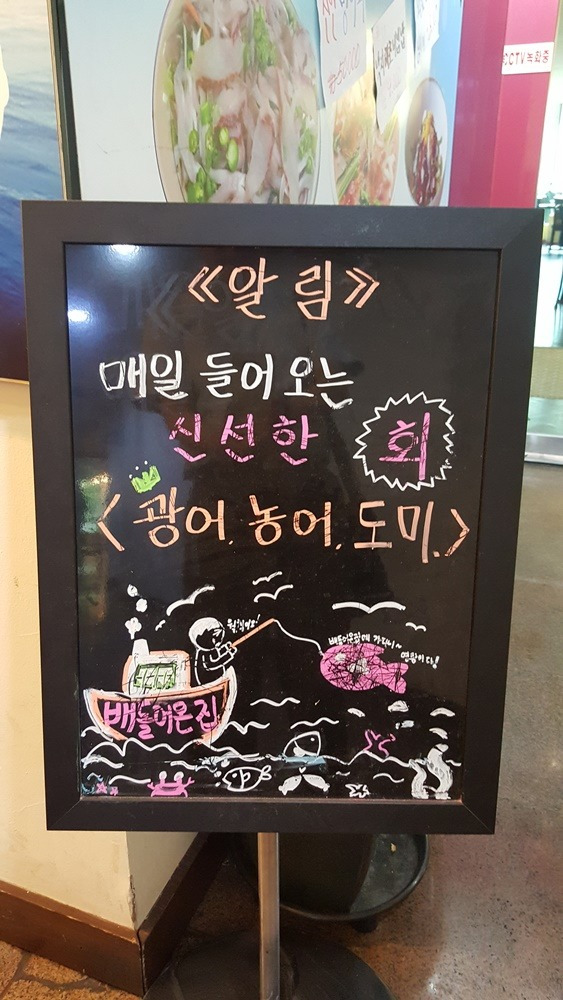 CCTV녹화중
《알림》
매일 들어오는
신선한 회
<광어. 농어. 도미.>
배들어온집에 가다니~
영광이다!
배들어온집